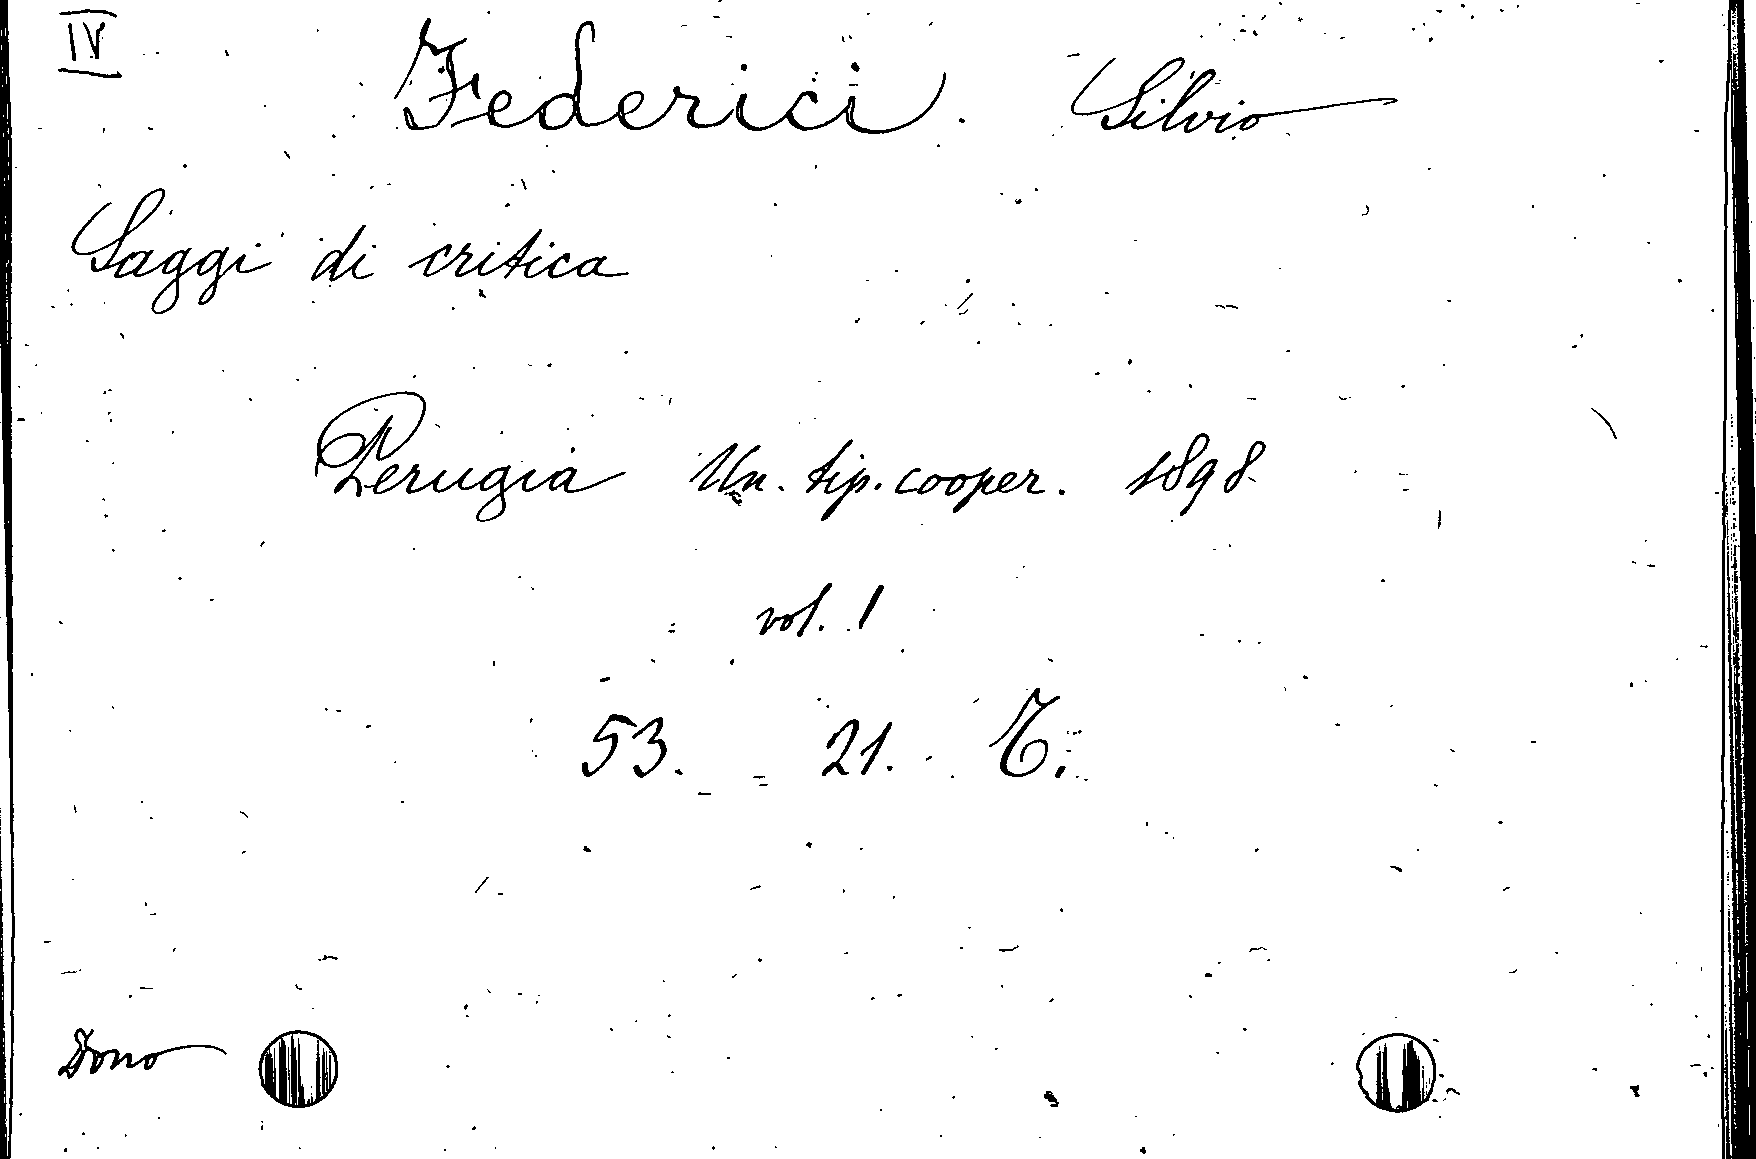 IV
Federici. Silvio
Saggi di critica
Perugia Un. tip. cooper. 1898
vol. 1
53. 21. T.
Dono